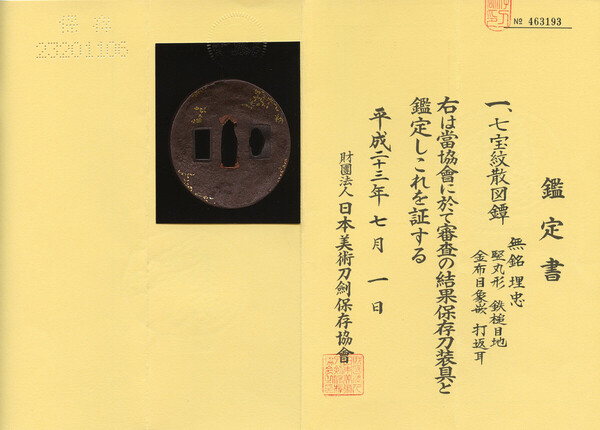 № 463193
鑑定書
一、七宝紋散図鐔
無銘 埋忠
竪丸形 鉄槌目地
金布目象嵌 打返耳
右は當協會に於て審査の結果保存刀装具と
鑑定しこれを証する
平成二十三年 七月 一日
財團法人 日本美術刀劍保存協會
保存
23201106